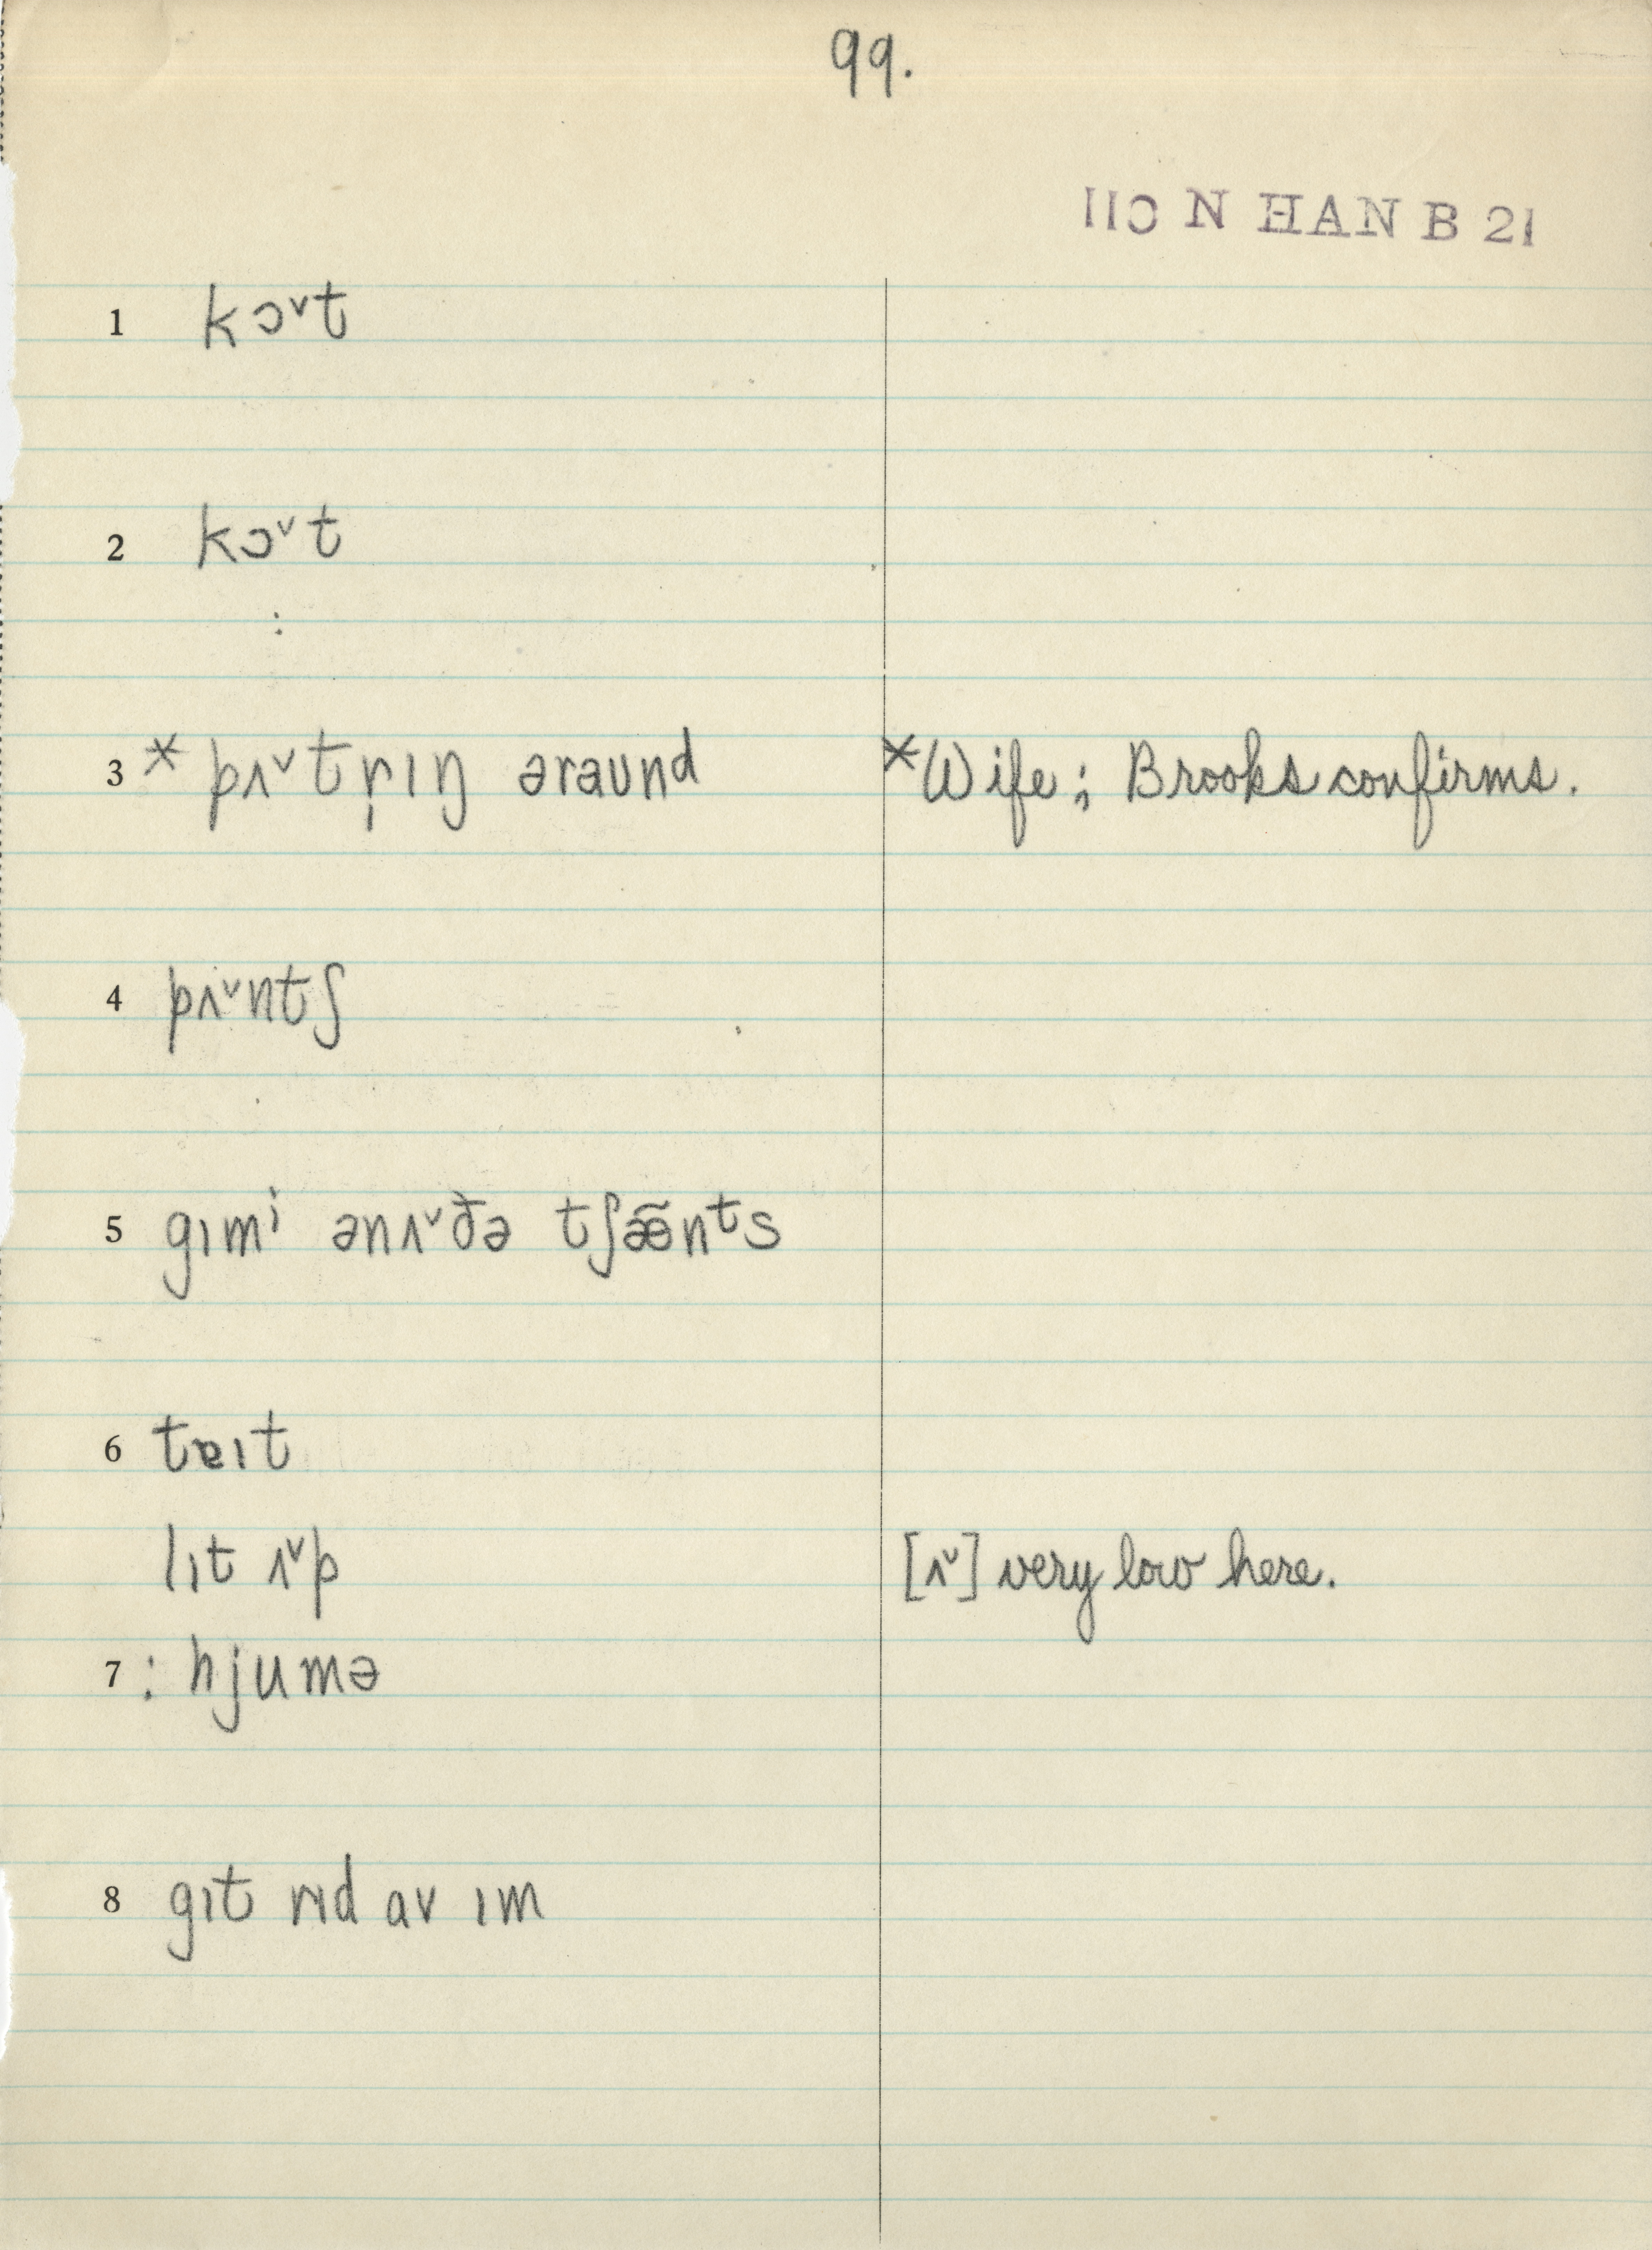 99.
110 N HAN B 21
1 kɔˇt
2 kɔˇt
:
3 * pʌˇtr̩ıŋ əraund *Wife; Brooks confirms.
4 pʌˇntʃ
5 gımⁱ ənʌˇðə tʃæ̃nᵗs
6 tɐıt
lıt ʌˇp [ʌˇ] very low here.
7 : hjumə
8 gıt rıd av ım